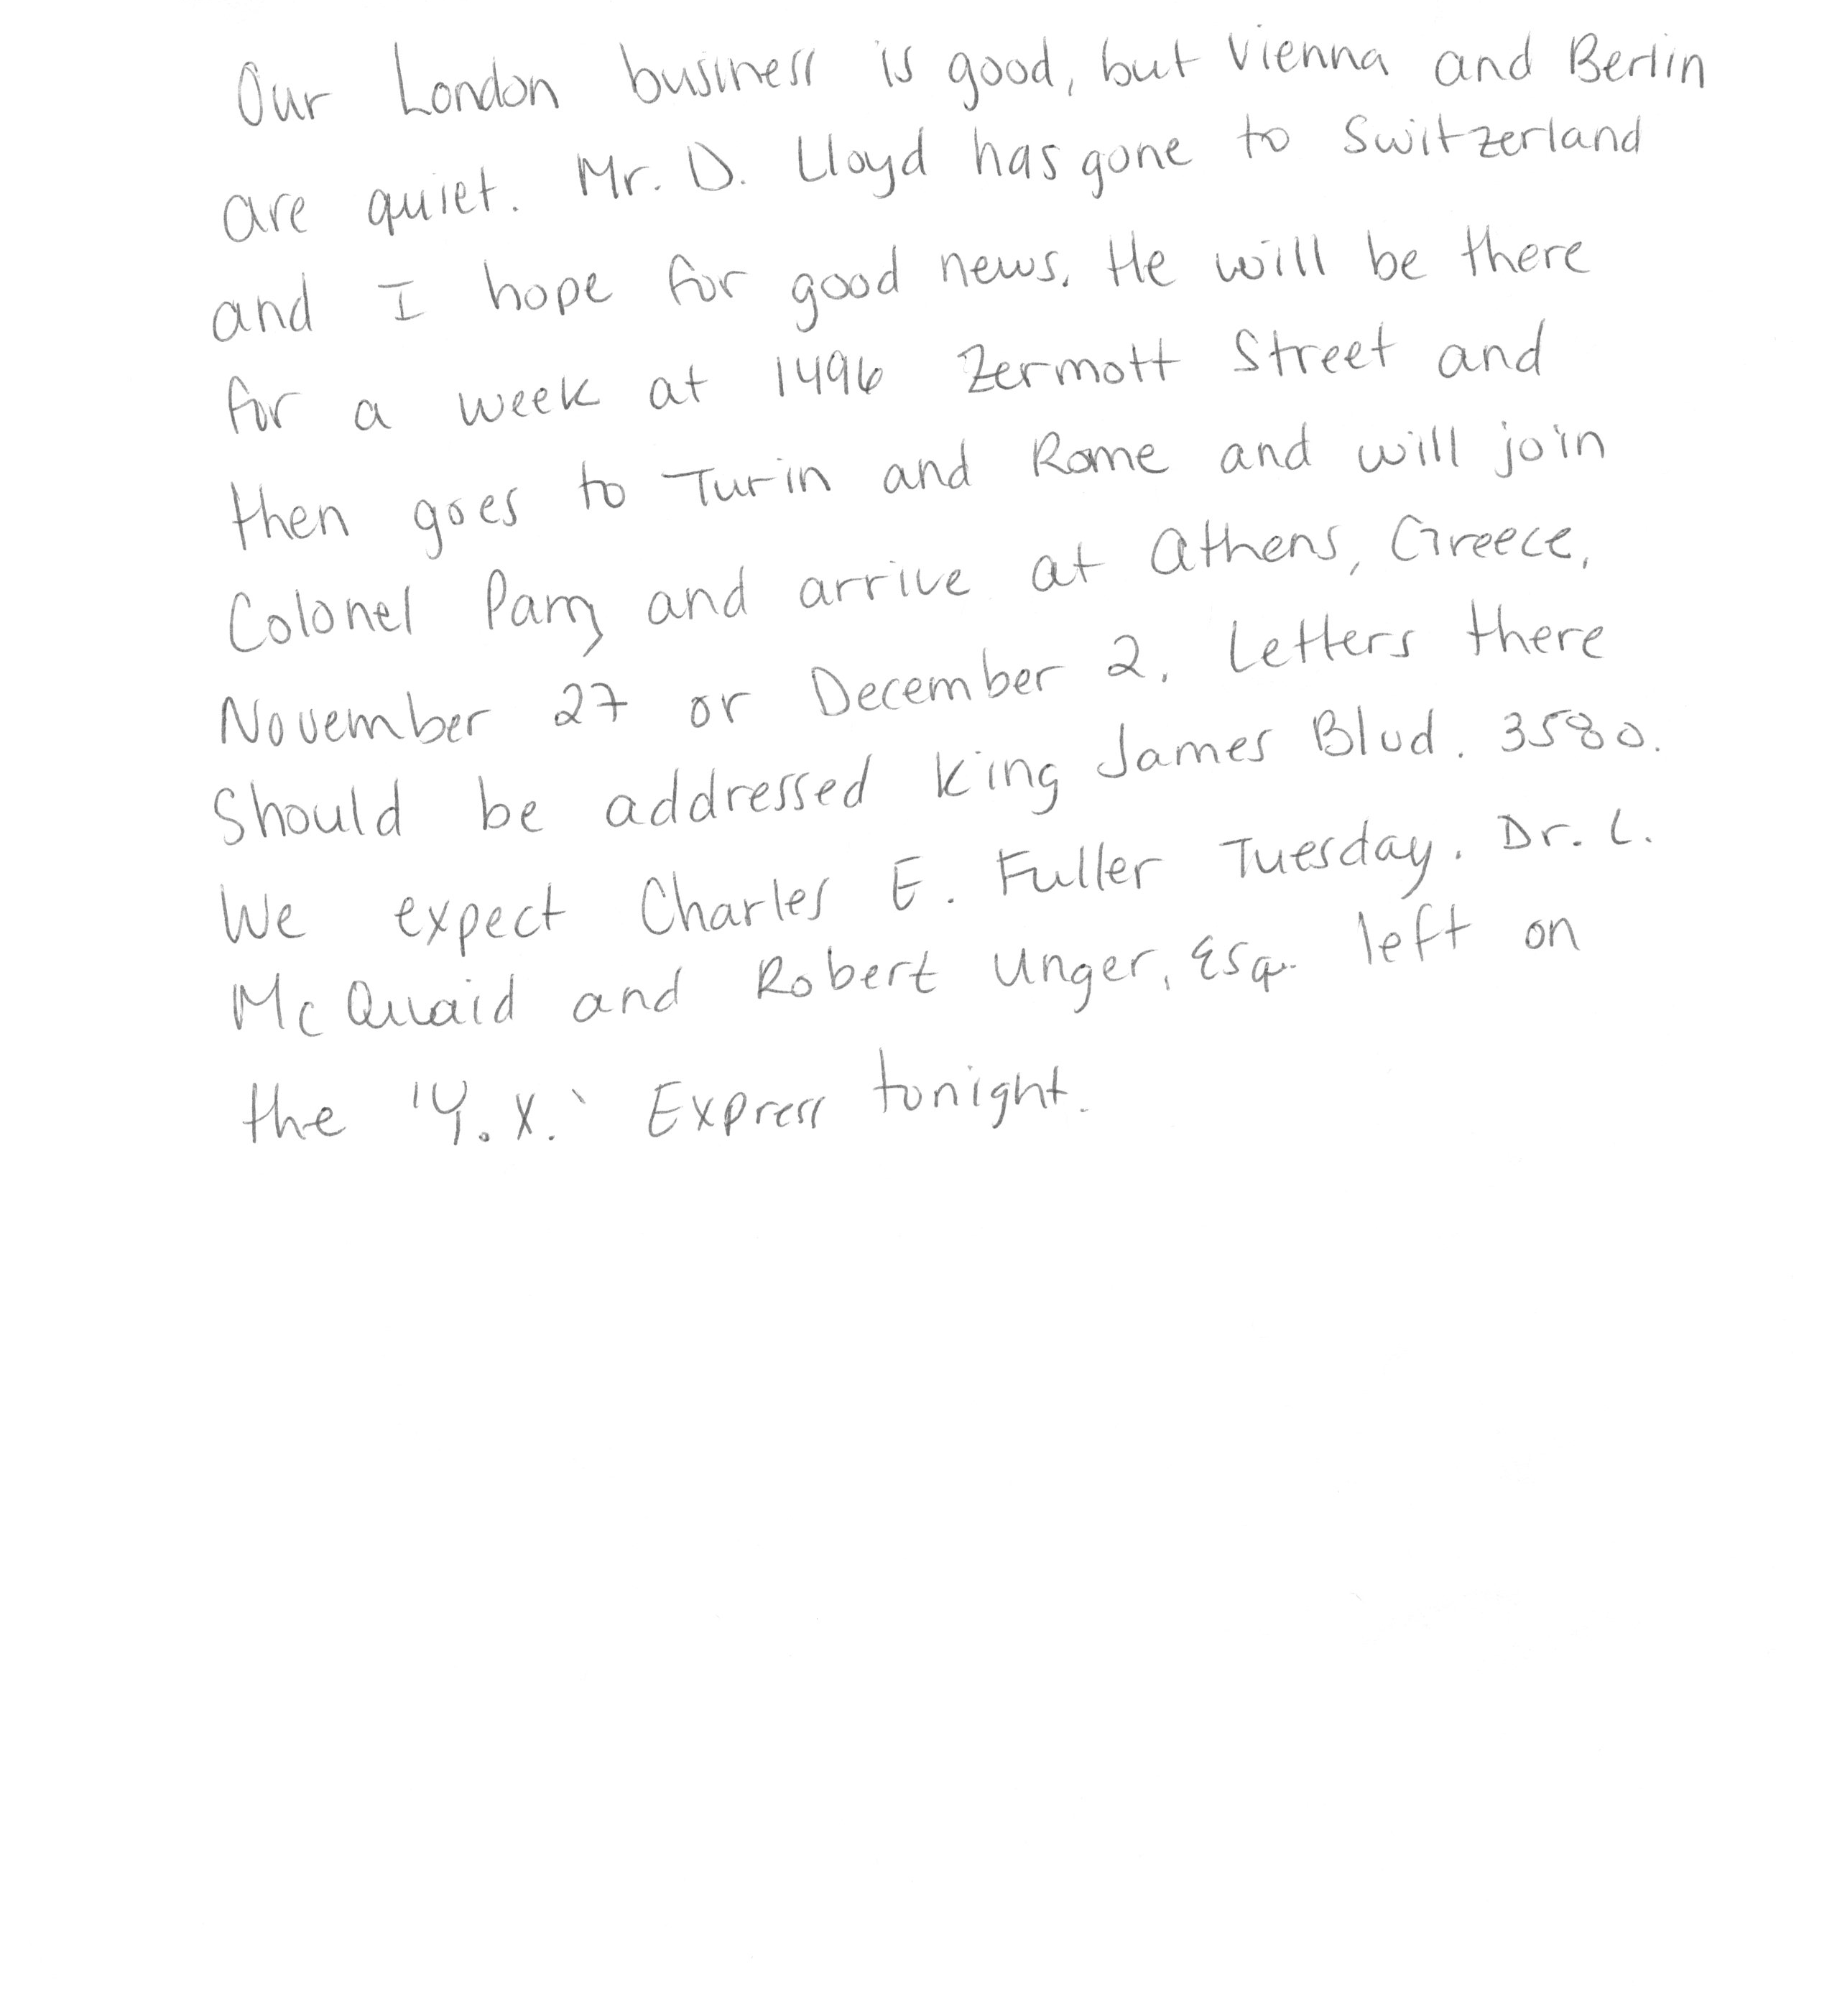 Our London business is good, but Vienna and Berlin
are quiet. Mr. D. Lloyd has gone to Switzerland
and I hope for good news. He will be there
for a week at 1496 Zermott Street and
then goes to Turin and Rome and will join
Colonel Parry and arrive at Athens, Greece,
November 27 or December 2. Letters there
Should be addressed King James Blvd. 3580.
We expect Charles E. Fuller Tuesday. Dr. L.
McQuaid and Robert Unger, Esq. left on
the 'Y.X.' Express tonight.